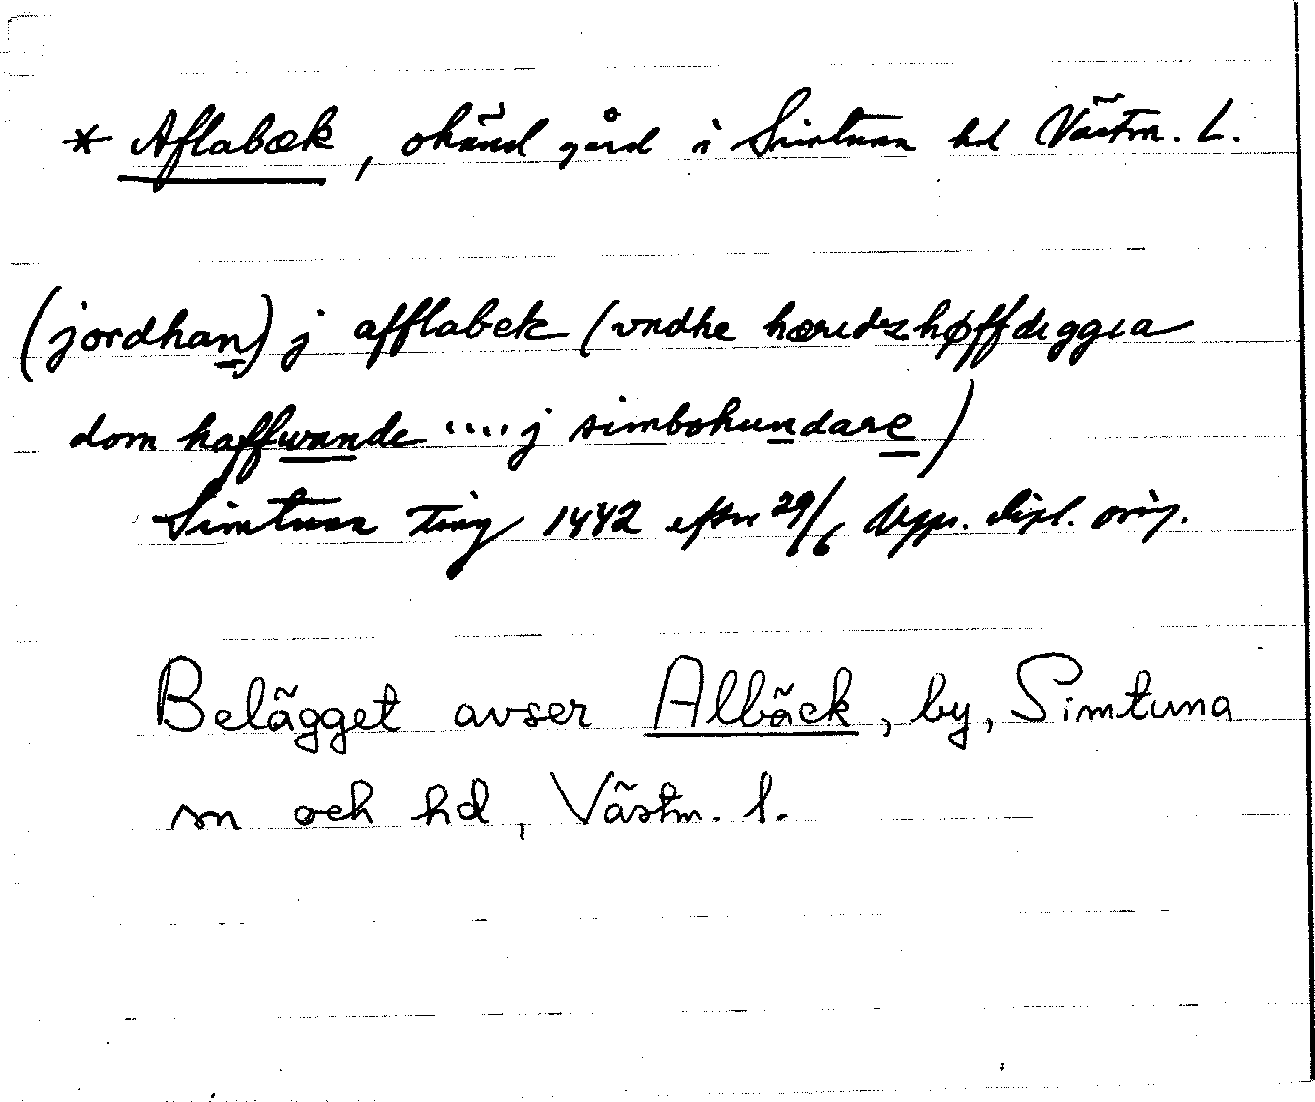 * Aflabæk, okänd gård i Simtuna hd Västm. L.
(jordhan) j afflabek (vndhe hæredzhøffdeggia
dom haffwande .... j simbohundare)
Simtuna ting 1442 efter 29/6 Upps. dipl. orig.
Belägget avser Albäck, by, Simtuna
sn och hd, Västm. l.